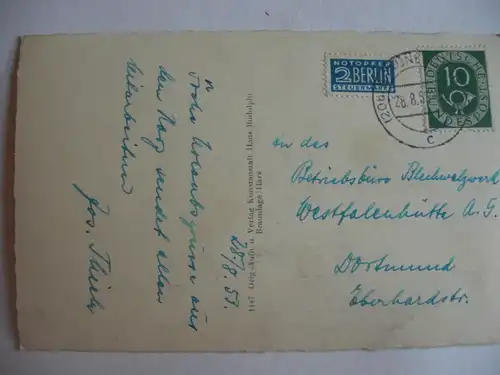 NOTOPFER
2 BERLIN
STEUERMARKE
10
DEUTSCHE BUNDESPOST
(20b)
28.8.5
c
28./8. 53.
Frohe Urlaubsgrüsse aus
dem Harz sendet allen
Mitarbeitern
Jos. Thiele
1147 Orig.-Aufn. u. Verlag Kunstanstalt Hans Rudolphi
Braunlage/Harz
An das
Betriebsbüro Blechwalzwerk
Westfalenhütte A.G.
Dortmund
Eberhardstr.